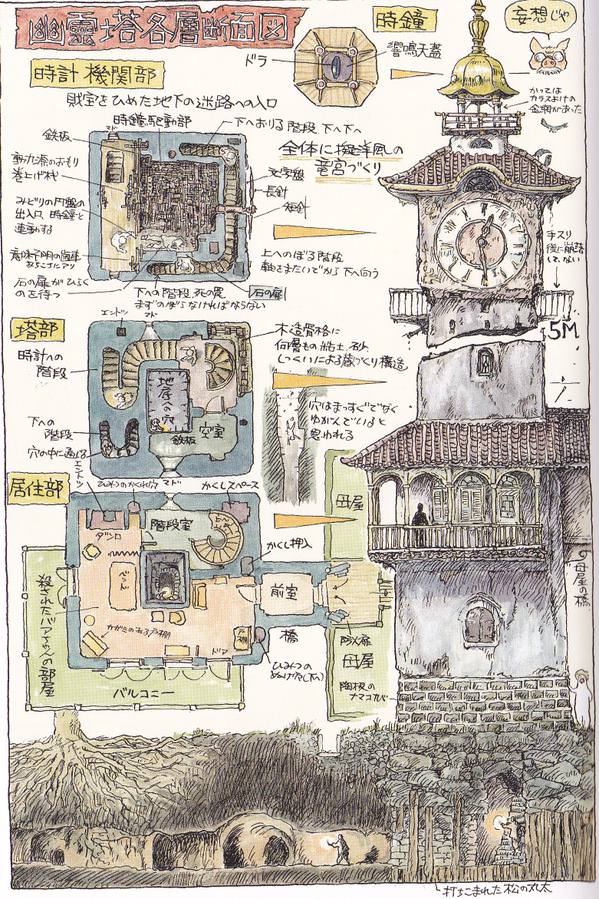 幽霊塔各層断面図
時鐘
妄想じゃ
ドラ
響鳴天蓋
かつては
カラスよけの
金網があった
時計機関部
財宝をひめた地下の迷路への入口
時鐘駆動部
マド
下へおりる階段 下へ下へ
全体に擬洋風の
竜宮づくり
鉄板
動力源のおもり
巻上げ機
文字盤
長針
短針
みどりの円盤の
出入口、時鐘と
連動する
手スリ
後に崩落
してない
上へのぼる階段
軸をまたいでから下へ向う
石の扉がひらく
のを待つ
下への階段、死の罠
まずのぼらなければならない
石の扉
5M
塔部
エントツ
マド
時計への
階段
木造骨格に
何層もの粘土、砂、
しっくいにお蔵づくり構造
地底への穴
空室
鉄板
下への
階段
穴の中に通じる
穴はまっすぐでなく
ゆがんでいると
思われる
居住部
エントツ
ひみつのかくれ穴
マド
かくしスペース
母屋
ダンロ
階段室
かくし押入
ベッド
前室
橋
殺されたバアさんの部屋
ドア
ひみつの
ぬけ穴(下へ)
バルコニー
防火扉
母屋
陶板の
ナマコカベ
母屋の橋
打ちこまれた松の丸太